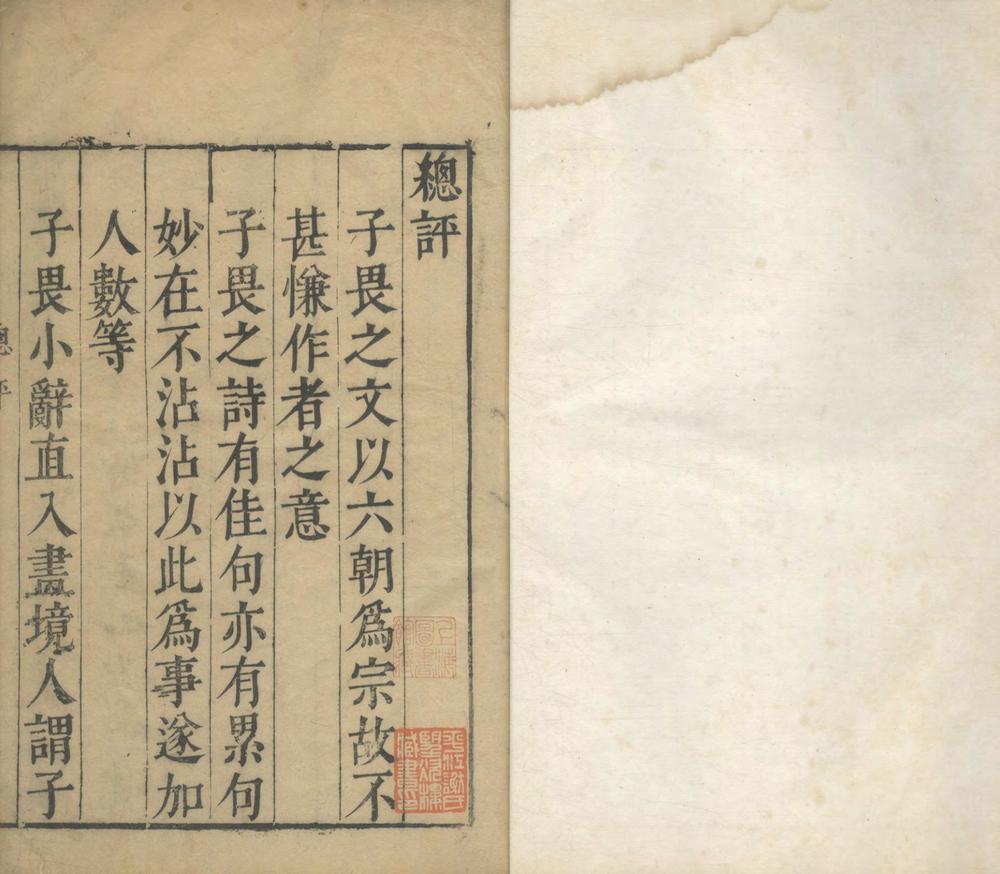 總評
子畏之文以六朝爲宗故不
甚慊作者之意
子畏之詩有佳句亦有累句
妙在不沾沾以此爲事遂加
人數等
子畏小辭直入畫境人謂子
總評
平江謝氏
藏書印